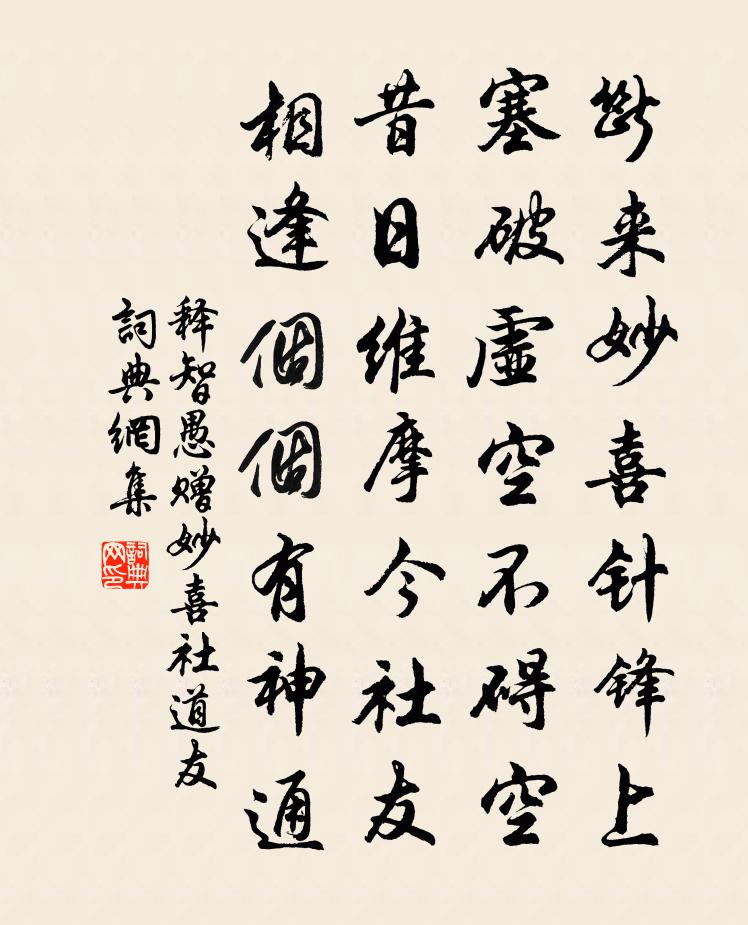 斷来妙喜针锋上
塞破虚空不碍空
昔日维摩今社友
相逢個個有神通
释智愚赠妙喜社道友
詞典網集
詞典网印